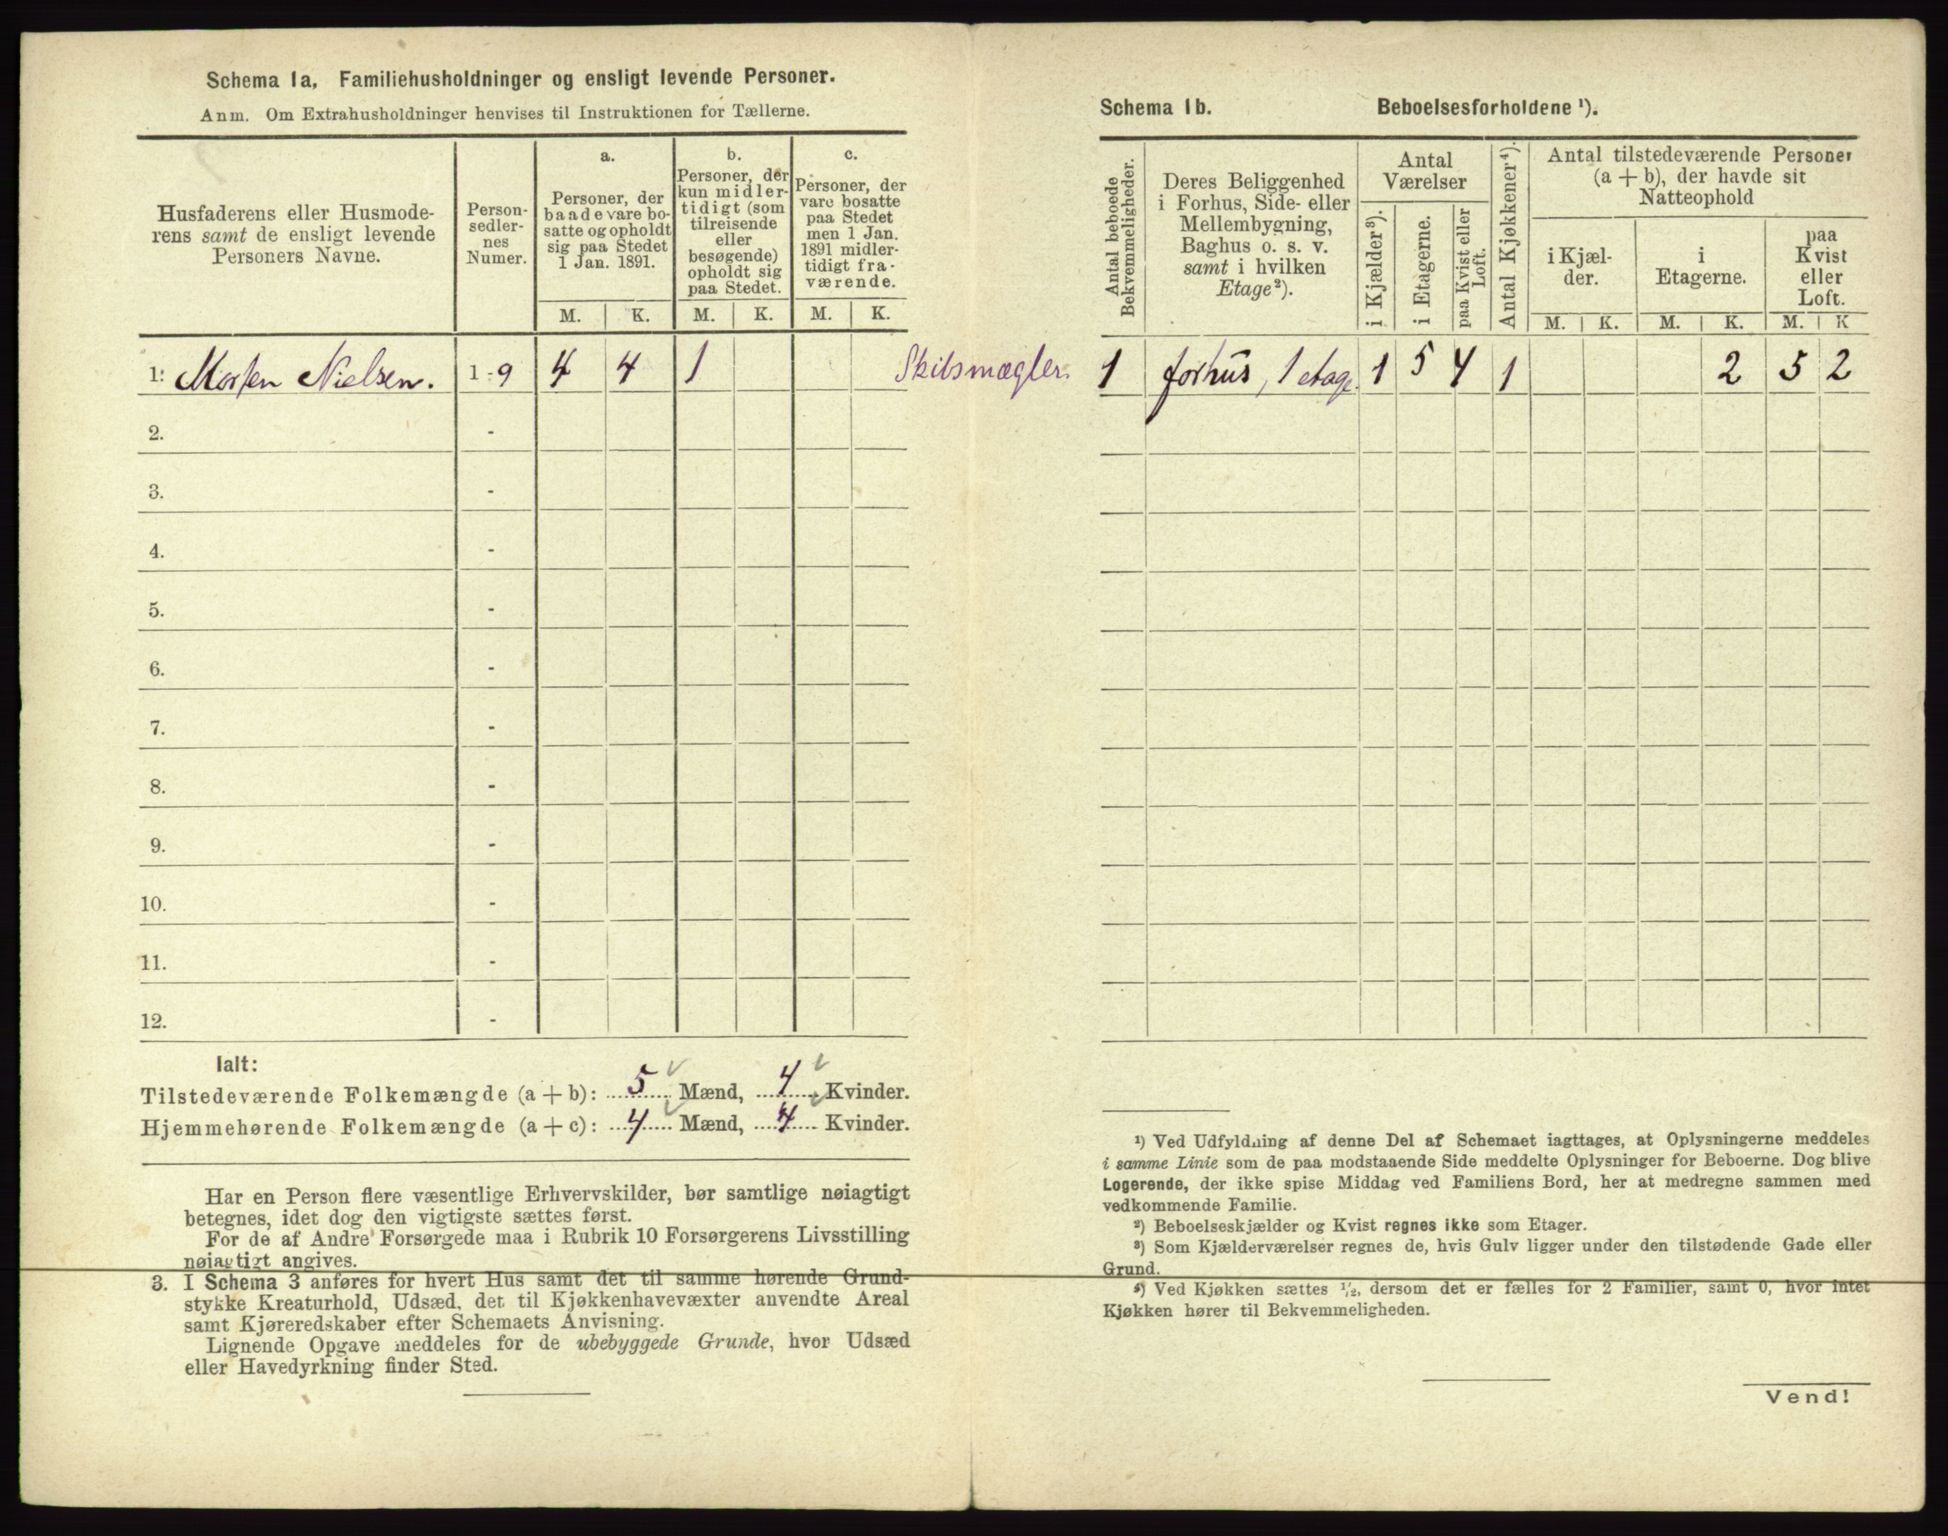 Schema 1a, Familiehusholdninger og ensligt levende Personer.
Anm. Om Extrahusholdninger henvises til Instruktionen for Tællerne.
Husfaderens eller Husmode-
rens samt de ensligt levende
Personers Navne.
Person-
sedler-
nes
Numer.
a.
Personer, der
baade vare bo-
satte og opholdt
sig paa Stedet
1 Jan. 1891.
b.
Personer, der
kun midler-
tidigt (som
tilreisende
eller
besøgende)
opholdt sig
paa Stedet.
c.
Personer, der
vare bosatte
paa Stedet
men 1 Jan.
1891 midler-
tidigt fra-
værende.
M. K. M. K. M. K.
1. Morten Nielsen. 1-9 4 4 1 Skibsmægler.
2. -
3. -
4. -
5. -
6. -
7. -
8. -
9. -
10. -
11. -
12. -
Ialt:
Tilstedeværende Folkemængde (a + b): 5 Mænd, 4 Kvinder.
Hjemmehørende Folkemængde (a + c): 4 Mænd, 4 Kvinder.
Har en Person flere væsentlige Erhvervskilder, bør samtlige nøiagtigt
betegnes, idet dog den vigtigste sættes først.
For de af Andre Forsørgede maa i Rubrik 10 Forsørgerens Livsstilling
nøiagtigt angives.
3. I Schema 3 anføres for hvert Hus samt det til samme hørende Grund-
stykke Kreaturhold, Udsæd, det til Kjøkkenhavevæxter anvendte Areal
samt Kjøreredskaber efter Schemaets Anvisning.
Lignende Opgave meddeles for de ubebyggede Grunde, hvor Udsæd
eller Havedyrkning finder Sted.
Schema 1b. Beboelsesforholdene ¹).
Antal beboede
Bekvemmeligheder.
Deres Beliggenhed
i Forhus, Side- eller
Mellembygning,
Baghus o. s. v.
samt i hvilken
Etage²).
Antal
Værelser
i Kjælder³).
i Etagerne.
paa Kvist eller
Loft.
Antal Kjøkkener⁴).
Antal tilstedeværende Personer
(a + b), der havde sit
Natteophold
i Kjæl-
der.
i
Etagerne.
paa
Kvist
eller
Loft.
M. K. M. K. M. K
1 forhus, 1 etage. 1 5 4 1 2 5 2
¹) Ved Udfyldning af denne Del af Schemaet iagttages, at Oplysningerne meddeles
i samme Linie som de paa modstaaende Side meddelte Oplysninger for Beboerne. Dog blive
Logerende, der ikke spise Middag ved Familiens Bord, her at medregne sammen med
vedkommende Familie.
²) Beboelseskjælder og Kvist regnes ikke som Etager.
³) Som Kjælderværelser regnes de, hvis Gulv ligger under den tilstødende Gade eller
Grund.
⁴) Ved Kjøkken sættes ½, dersom det er fælles for 2 Familier, samt 0, hvor intet
Kjøkken hører til Bekvemmeligheden.
Vend!